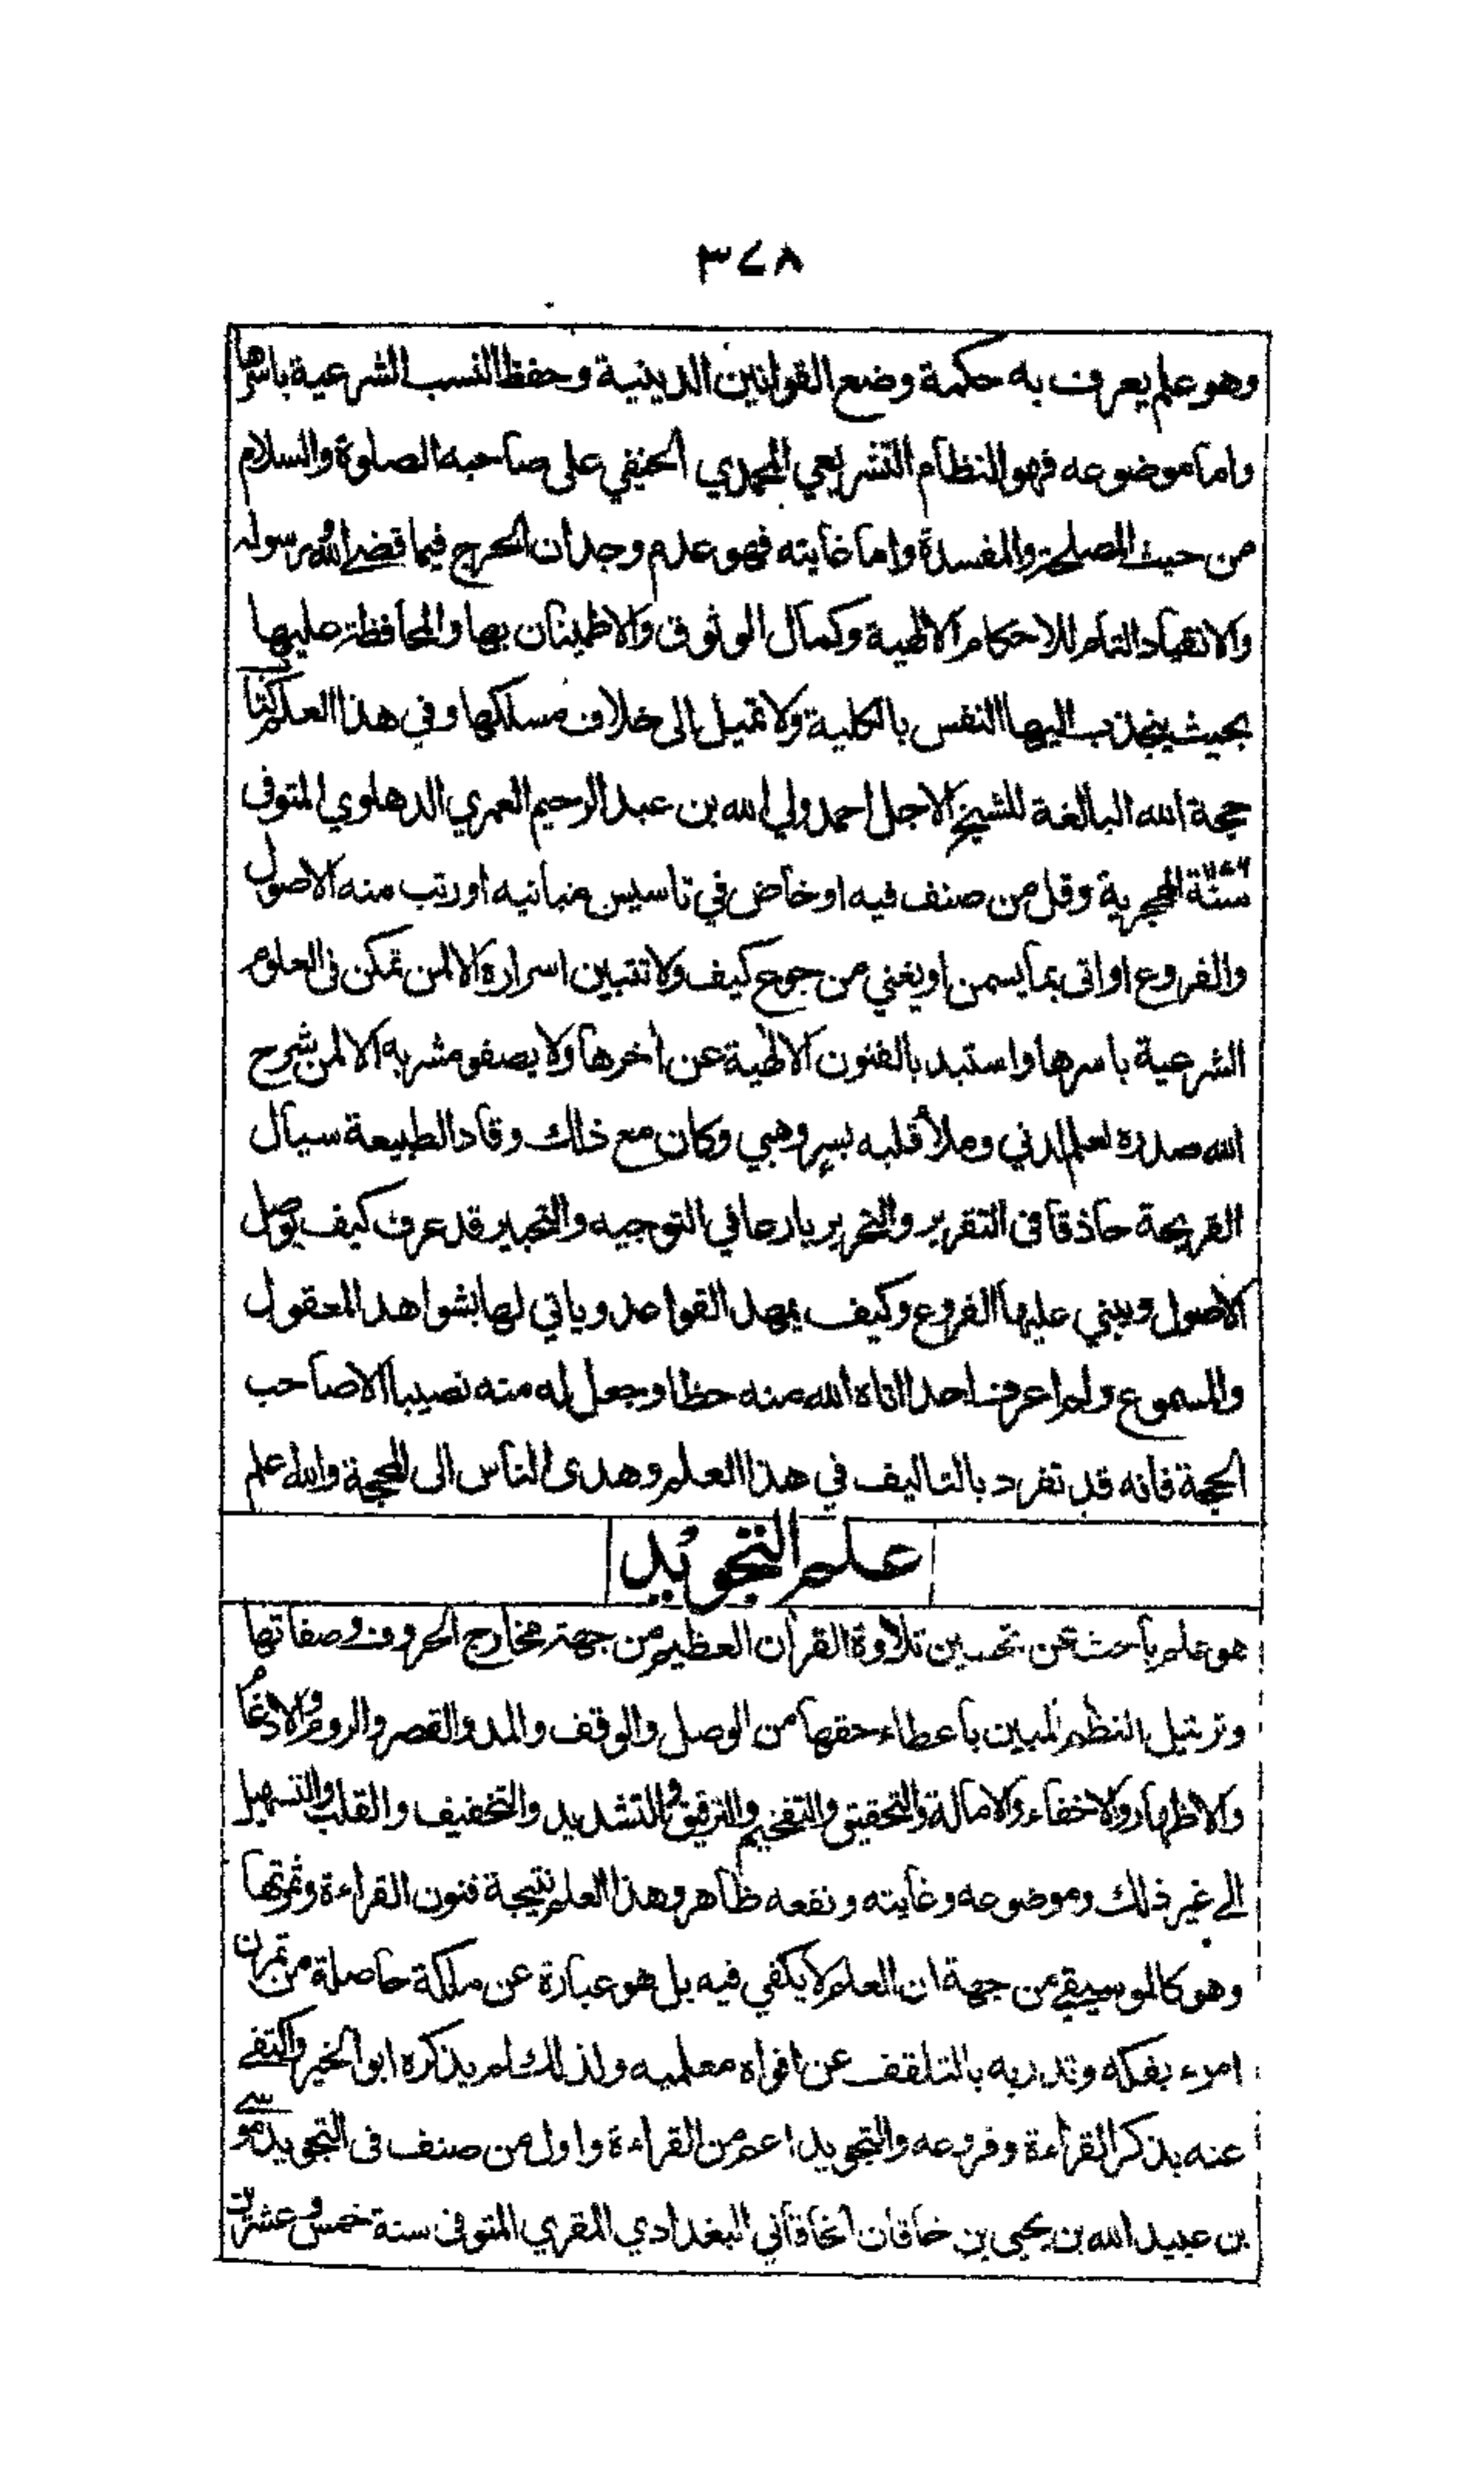 ٣٧٨
وهو علم يعرف به حكمة وضع القوانين الدينية وحفظ النسب الشرعية باسرها
واما موضوعه فهو النظام التشريعي المحمدي الحنيفي على صاحبه الصلوة والسلام
من حيث المصلحة والمفسدة واما غايته فهو عدم وجدان الحرج فيما قضى الله ورسوله
والانقياد التام للاحكام الالهية وكمال الوثوق والاطمينان بها والمحافظة عليها
بحيث ينجذب اليها النفس بالكلية ولا تميل الى خلاف مسلكها وفي هذا العلم كتاب
حجة الله البالغة للشيخ الاجل احمد ولي الله بن عبد الرحيم العمري الدهلوي المتوفى
سنة الهجرية وقل من صنف فيه او خاض في تاسيس مبانيه او رتب منه الاصول
والفروع او اتى بما يسمن او يغني من جوع كيف ولا تتبين اسراره الا لمن تمكن في العلوم
الشرعية باسرها واستبد بالفنون الالهية عن اخرها ولا يصفو مشربه الا لمن شرح
الله صدره لعلم لدني وملأ قلبه بسر وهبي وكان مع ذلك وقاد الطبيعة سيال
القريحة حاذقا في التقرير والتحرير بارعا في التوجيه والتحبير قد عرف كيف يوصل
الاصول ويبني عليها الفروع وكيف يمهد القواعد وياتي لها بشواهد المعقول
والمسموع ولم اعرف احدا اتاه الله منه حظا وجعل له منه نصيبا الا صاحب
الحجة فانه قد تفرد بالتاليف في هذا العلم وهدى الناس الى المحجة والله اعلم
علم التجويد
هو علم باحث عن تحسين تلاوة القرآن العظيم من جهة مخارج الحروف وصفاتها
وترتيل النظم المبين باعطاء حقها من الوصل والوقف والمد والقصر والروم والادغام
والاظهار والاخفاء والامالة والتحقيق والتفخيم والترقيق والتشديد والتخفيف والقلب والتسهيل
الى غير ذلك وموضوعه وغايته ونفعه ظاهر وهذا العلم نتيجة فنون القراءة وثمرتها
وهو كالموسيقى من جهة ان العلم لا يكفي فيه بل هو عبارة عن ملكة حاصلة من تمرن
امرء بفكه وتدربه بالتلقف عن افواه معلميه ولذلك لم يذكره ابو الخير واكتفى
عنه بذكر القراءة وفروعه والتجويد اعم من القراءة واول من صنف في التجويد موسى
بن عبيد الله بن يحيى بن خاقان الخاقاني البغدادي المقري المتوفى سنة خمس وعشرين